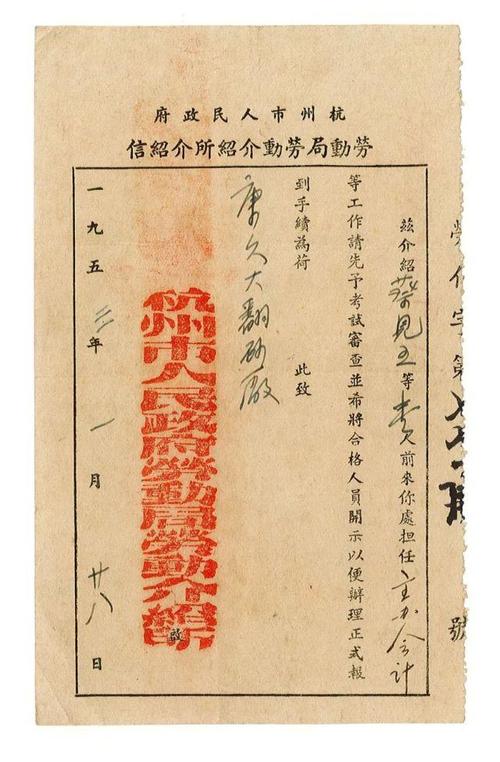 府政民人市州杭
信紹介所紹介動勞局動勞
勞介字第 號
茲介紹蔡見五等 前來你處担任主办会计
等工作請先予考試審查並希將合格人員開示以便辦理正式報
到手續為荷 此致
康久大翻砂廠
杭州市人民政府勞動局勞動介紹所
啟
一九五三年一月廿八日